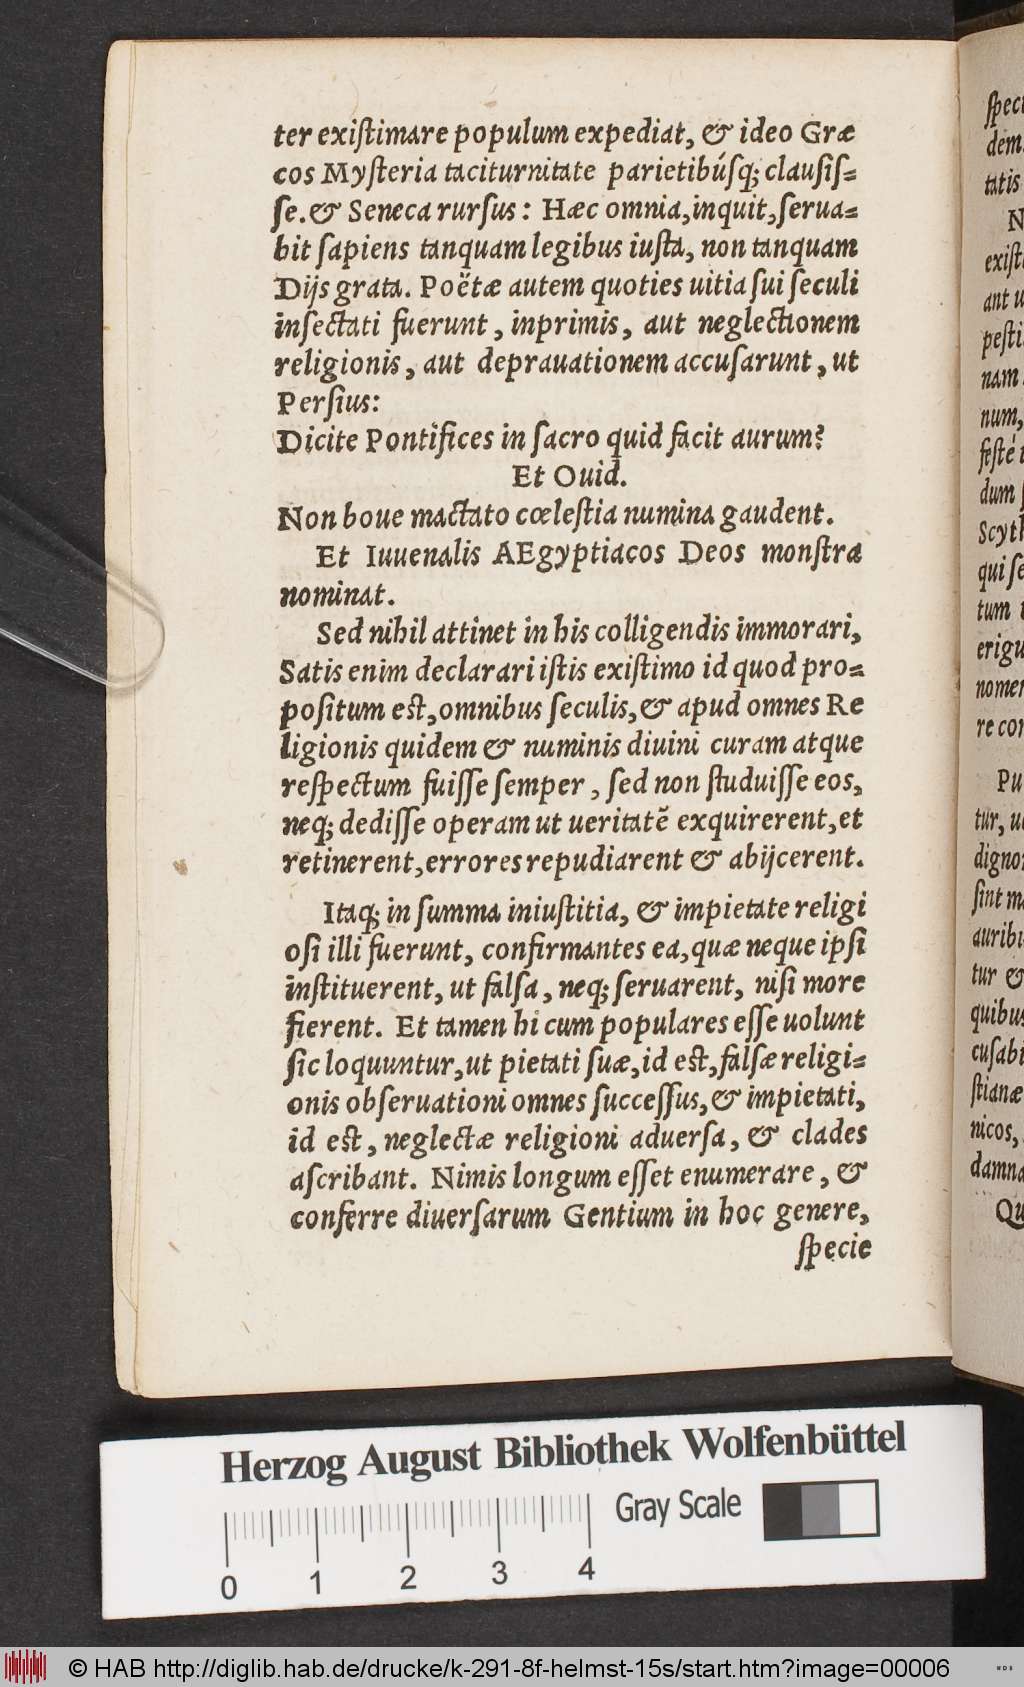 ter existimare populum expediat, & ideo Græ
cos Mysteria taciturnitate parietibúsq; clausis=
se. & Seneca rursus: Hæc omnia, inquit, serua=
bit sapiens tanquam legibus iusta, non tanquam
Dijs grata. Poëtæ autem quoties uitia sui seculi
insectati fuerunt, inprimis, aut neglectionem
religionis, aut deprauationem accusarunt, ut
Persius:
Dicite Pontifices in sacro quid facit aurum?
Et Ouid.
Non boue mactato cœlestia numina gaudent.
Et Iuuenalis AEgyptiacos Deos monstra
nominat.
Sed nihil attinet in his colligendis immorari,
Satis enim declarari istis existimo id quod pro=
positum est, omnibus seculis, & apud omnes Re
ligionis quidem & numinis diuini curam atque
respectum fuisse semper, sed non studuisse eos,
neq; dedisse operam ut ueritatẽ exquirerent, et
retinerent, errores repudiarent & abijcerent.
Itaq; in summa iniustitia, & impietate religi
osi illi fuerunt, confirmantes ea, quæ neque ipsi
instituerent, ut falsa, neq; seruarent, nisi more
fierent. Et tamen hi cum populares esse uolunt
sic loquuntur, ut pietati suæ, id est, falsæ religi=
onis obseruationi omnes successus, & impietati,
id est, neglectæ religioni aduersa, & clades
ascribant. Nimis longum esset enumerare, &
conferre diuersarum Gentium in hoc genere,
specie
speci
dem
tatis
N
existi
ant u
pesti
nam
num,
festé
dum
Scyth
qui se
tum
erigu
nomen
re con
Pu
tur, u
digno
sint m
auribu
tur &
quibus
cusabi
stianæ
nicos,
damna
Qu
Herzog August Bibliothek Wolfenbüttel
Gray Scale
0 1 2 3 4
© HAB http://diglib.hab.de/drucke/k-291-8f-helmst-15s/start.htm?image=00006